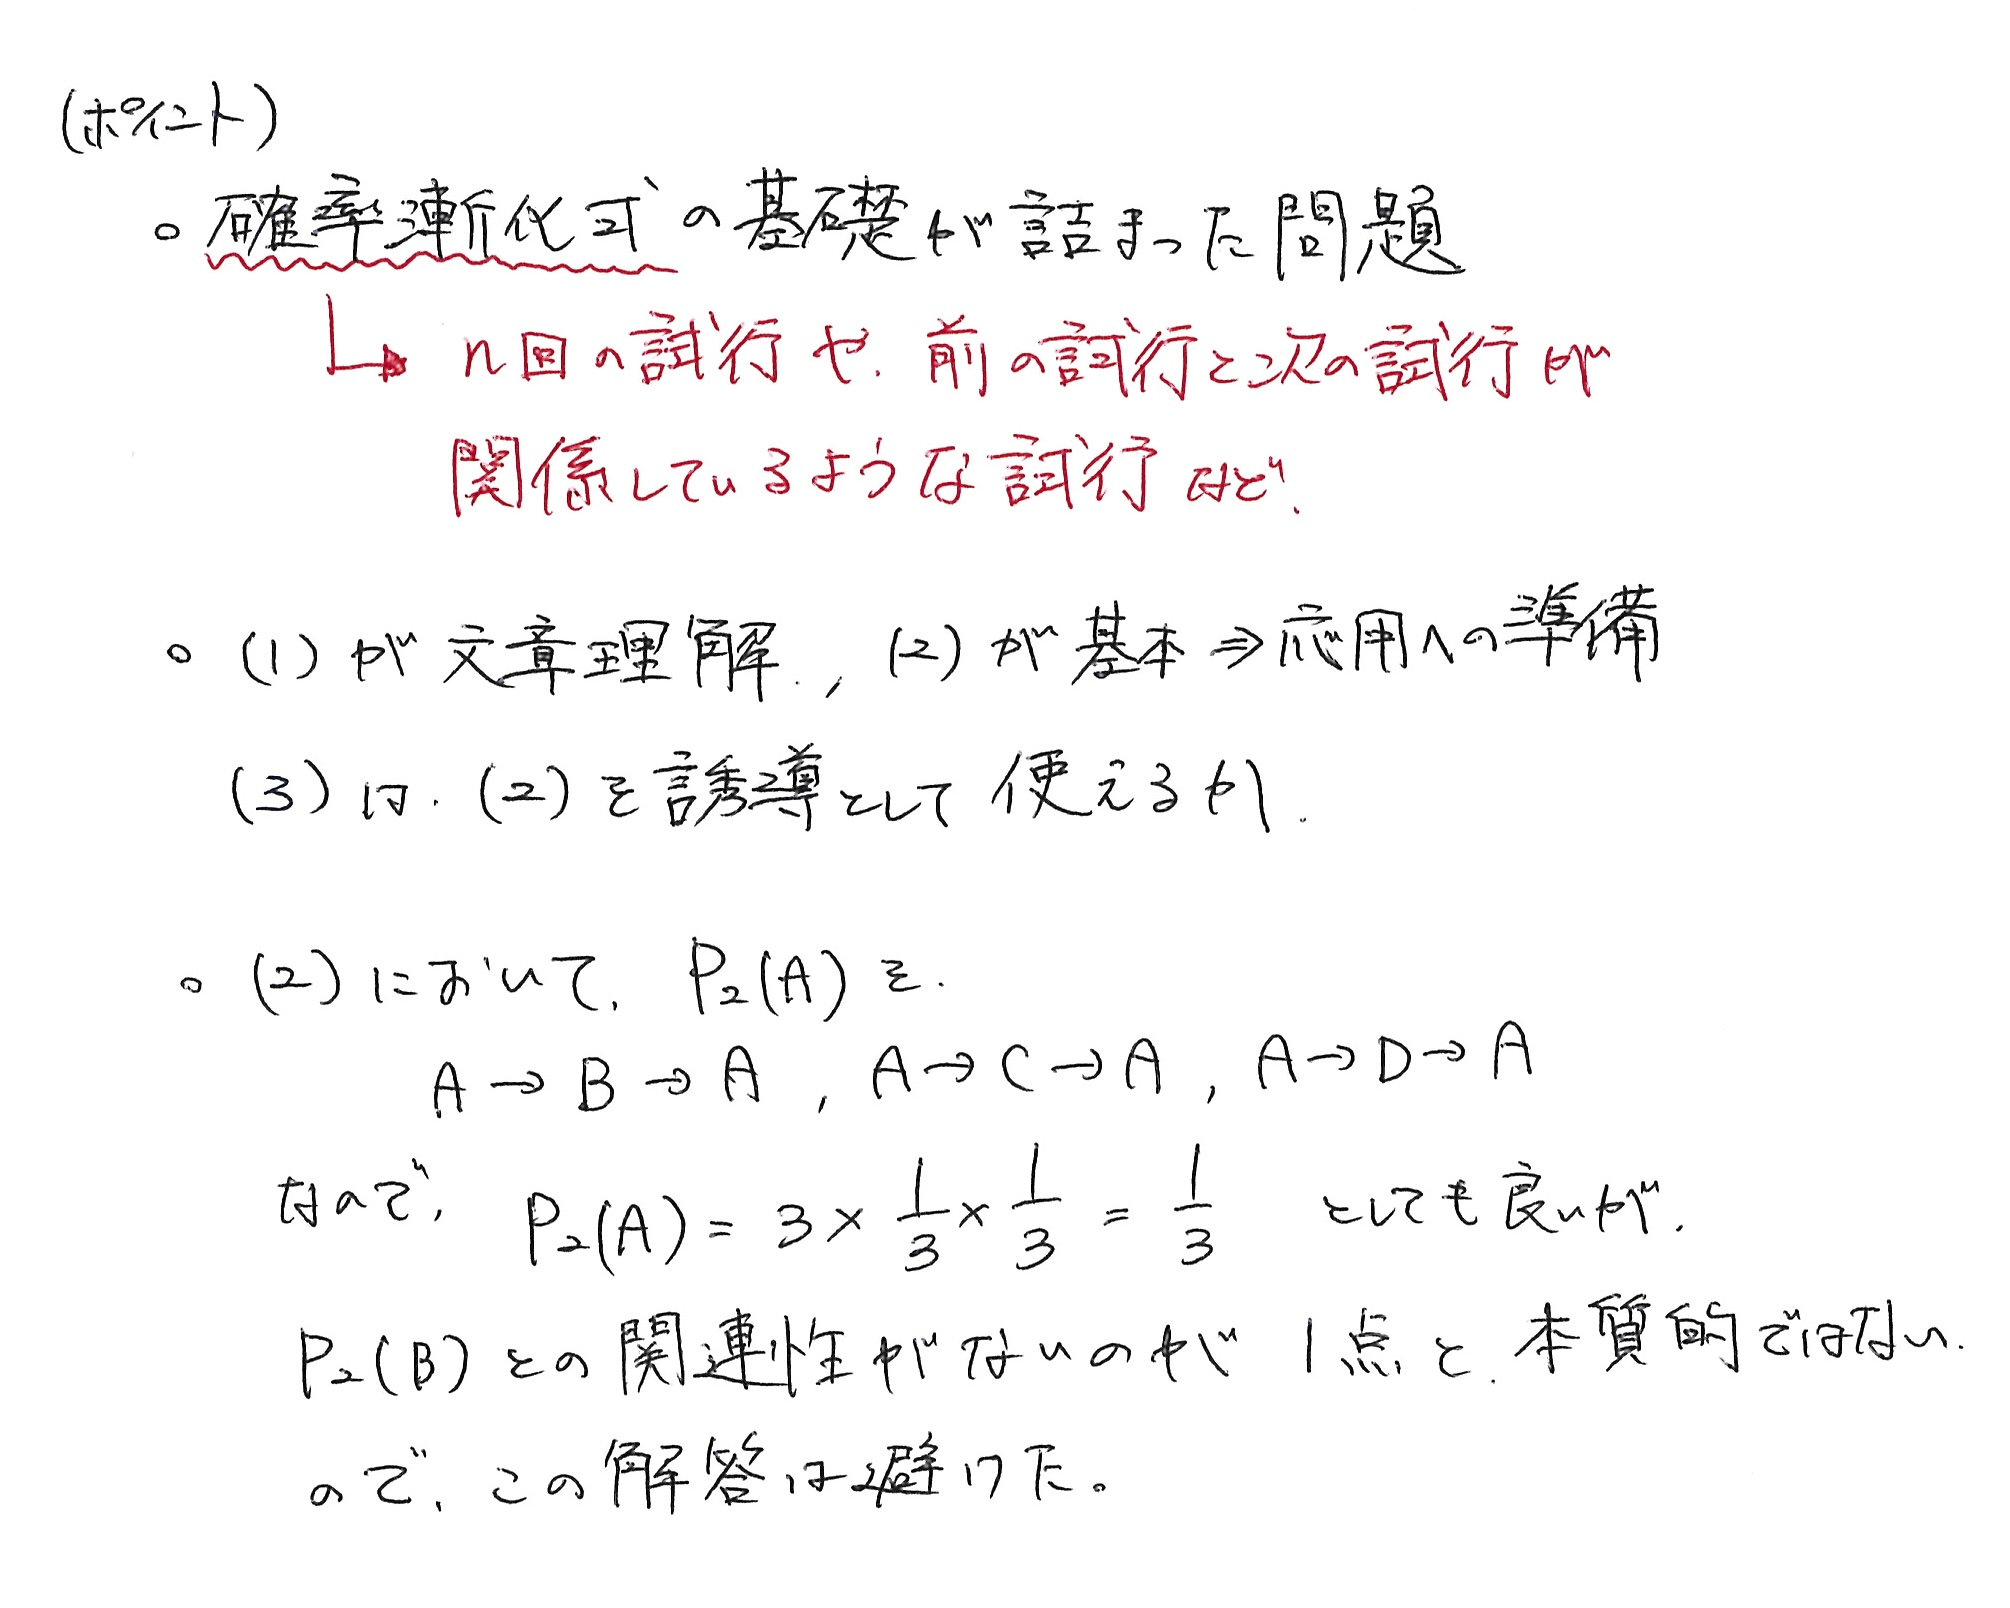 (ポイント)
○ 確率漸化式の基礎が詰まった問題
↳ n回の試行や、前の試行と次の試行が
関係しているような試行など、
○ (1)が文章理解、, (2)が基本⇒応用への準備
(3)は、(2)を誘導として使えるか、
○ (2)において、P₂(A)を、
A→B→A , A→C→A , A→D→A
なので、 P₂(A) = 3 × 1/3 × 1/3 = 1/3 としても良いが、
P₂(B)との関連性がないのが1点と、本質的ではない、
ので、この解答は避けた。